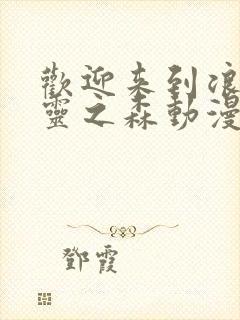 歡迎来到浪
靈之森動漫
鄧霞